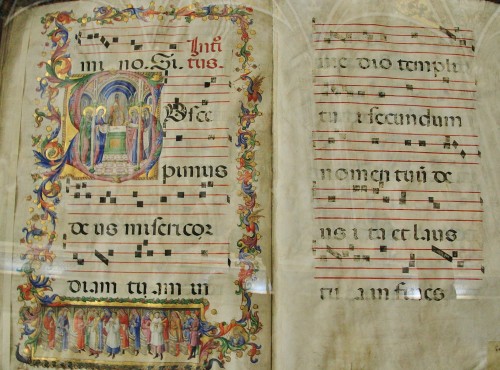 mi no. Si tus.
Susce
pimus
de us misericor
diam tu am in
me dio templi
tu i secundum
nomen tuū de
us i ta et laus
tu a in fines